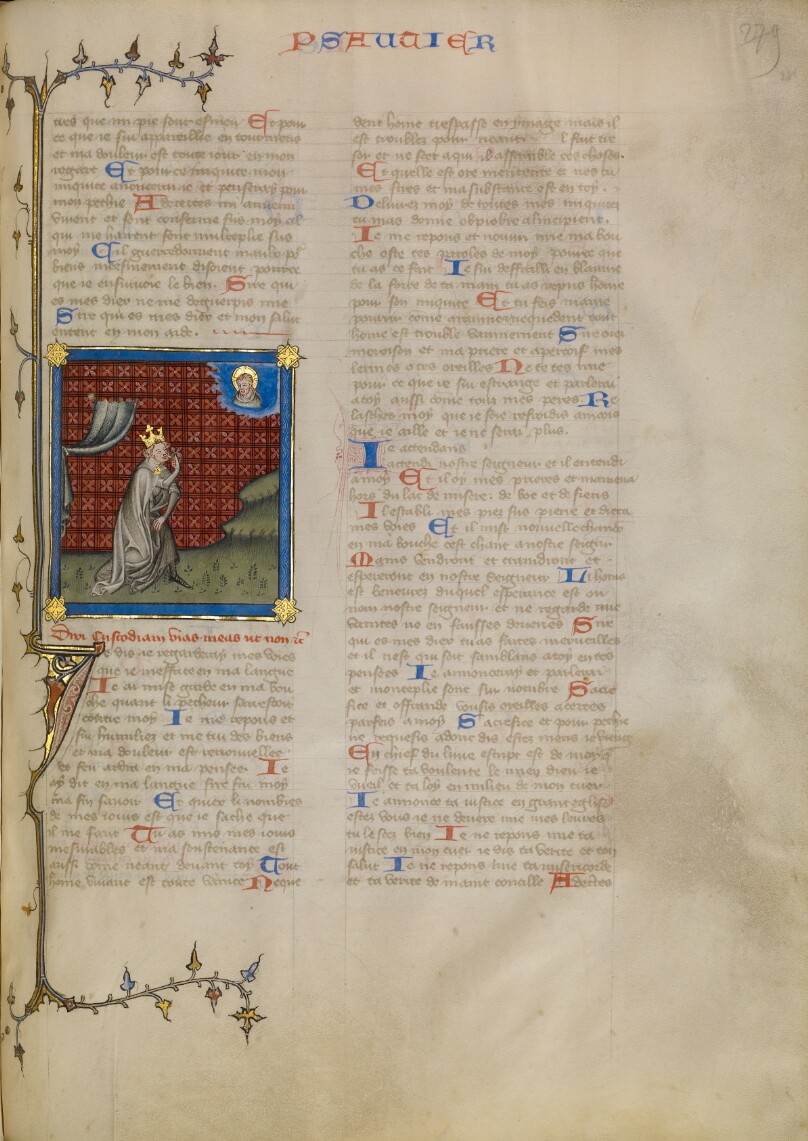 PSAUTIER
279
ties que mi pie sont esmeu Et pour
ce que ie sui appareillie en tourmens
et ma douleur est touz iours en mon
regart Et pour ce iniquite mon
iniquite anoncerai ie et penseray pour
mon pechie Adecertes mi anemi
viuent et sont conferme sus moy cil
qui me haient sont multeplie sus
moy Cil guerredonnent maulx por
biens mesdisoient pource
que ie ensuiuoie le bien. Sire qui
es mes diex ne me deguerpis mie
Sire qui es mes diex et mon salut
entent en mon aide.
Dixi Custodiam vias meas ut non etc
Ie dis ie regarderay mes voies
que ie ne mefface en ma langue
Ie ai mise garde en ma bou
che quant li pecheur sarestoit
contre moy Ie me repous et
sui humiliez et me teu des biens
et ma douleur est renouuellee
et feu ardra en ma pensee. Ie
ay dit en ma langue sire fai moy
ma fin sauoir Et quiex li nombres
de mes iours est que ie sache que
il me faut Tu as mis mes iours
mesurables et ma soustenance est
aussi come neant deuant toy Tout
home viuant est toute vanite Neque
dent home trespasse en ymage mais il
est troublez pour neant Il fait tre
sor et ne scet a qui il assemble ces choses.
Et quelle est ore mentente et nes tu
mes sires et ma sustance est en toy.
Deliure moy de toutes mes iniquitez
tu mas donne obprobre al incipient.
Ie me repous et nouuri mie ma bou
che oste tes paroles de moy pource que
tu as ce fait Ie sui deffailli en blasme
de la force de ta main tu as repris home
pour son iniquite Et tu feis
pourrir come arainne
home est trouble vainnement Sire oies
moroison et ma priere et apercoif mes
lermes o tes oreilles Ne te tes mie
pour ce que ie sui estrange et pelerin
a toy aussi come touz mes peres Re
lasches moy que ie soie refroidis aincois
que ie aille et ie ne serai plus.
Ie attendans
iattendi nostre seigneur et il entendi
a moy Et il oy mes prieres et mamena
hors du lac de misere de boe et de fiens
Il establi mes piez sus pierre et dreca
mes voies Et il mist nouuelle chancon
en ma bouche cest chant a nostre seigneur
Mains verdront et craindront et
espereront en nostre seigneur Li hons
est beneurez duquel esperance est ou
nom nostre seigneur et ne regarde mie
vanites ne en fausses deueries Sire
qui es mes diex tu as faites merueilles
et il nest qui soit samblans a toy en tes
pensees Ie annonceray et parlerai
et monteplie sont sur nombre Sacre
fice et offrande vousis oreilles acertes
parfeis a moy Sacrefice et pour pechie
ne requesis adonc dis
En chief du liure escript est de moy que
ie feisse ta voulente
vueil et ta loy en milieu de mon cuer
Ie annonce ta iustice en grant eglise
estez vous ie ne deuere mie mes leures
tu le scez bien Ie ne repons mie ta
iustice en mon cuer ie dis ta verite et ton
salut Ie ne repons mie ta misericorde
et ta verite de maint concille Adcertes